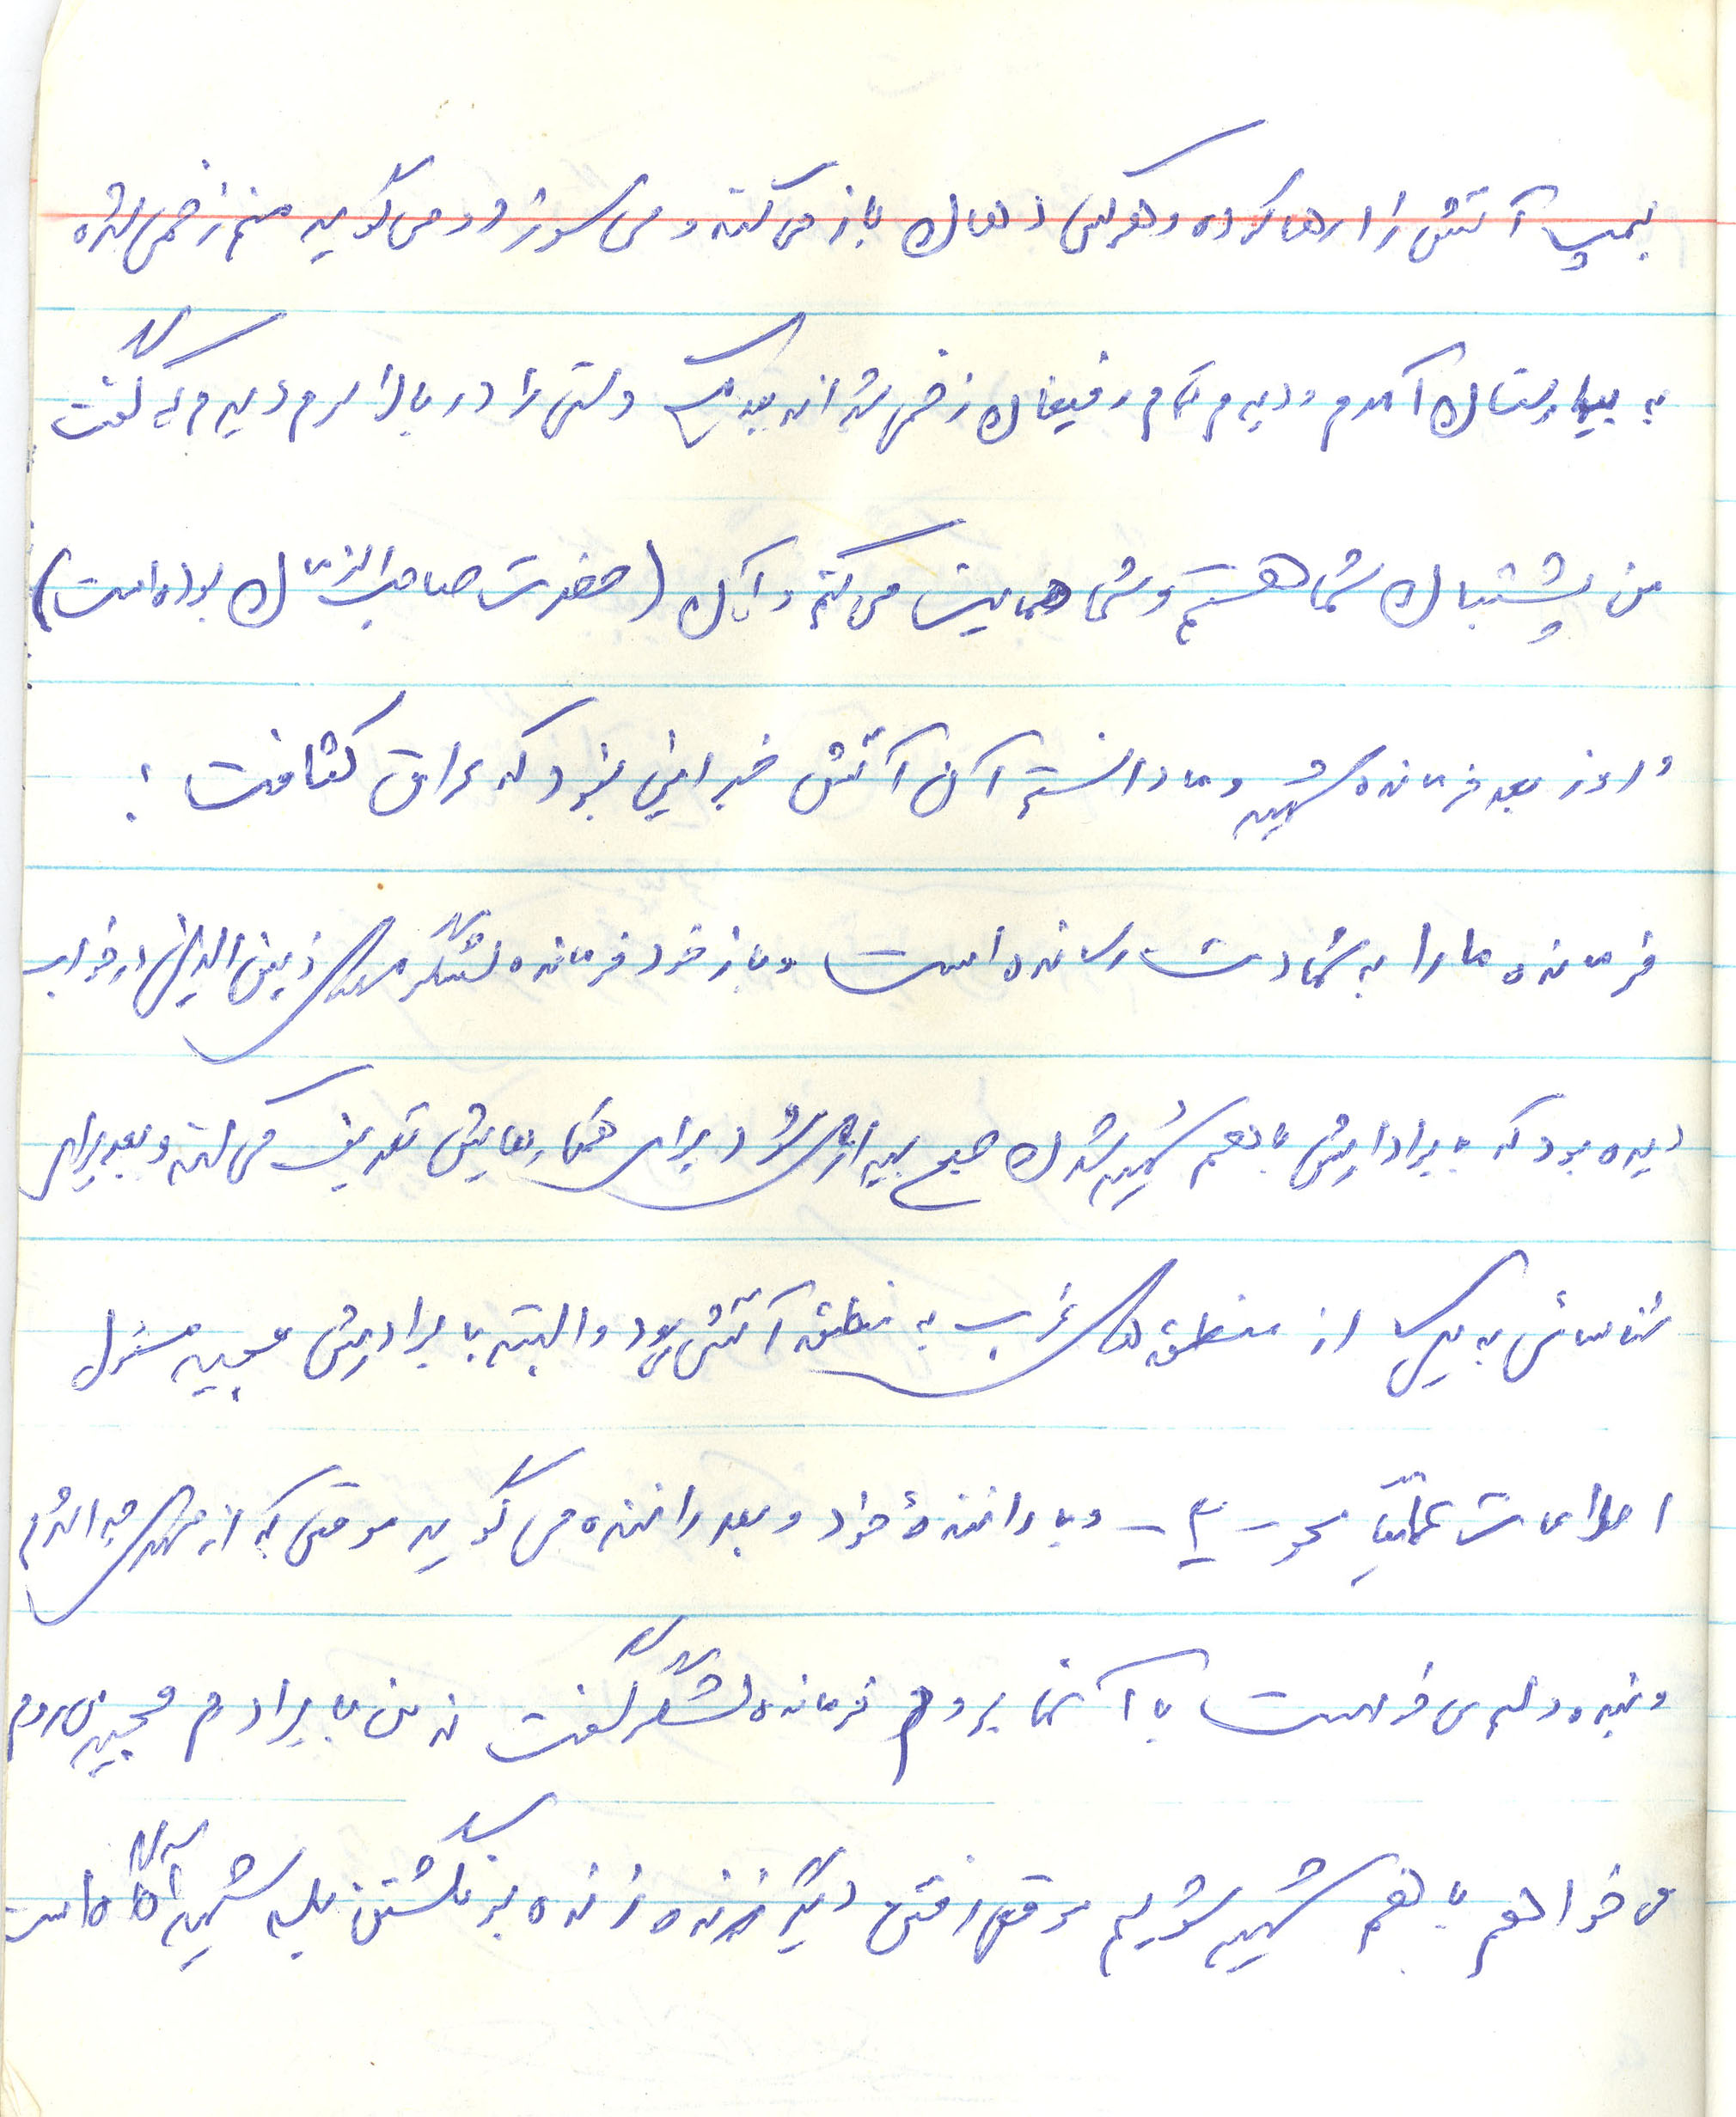 بمب آتش زا رها کرده و هر کس دهان باز می کند و می سوزد و می گوید منم زخمی شده
به بیمارستان آمدم و دیدم تمام رفیقان زخمی شده اند بعد یک دستی را در بالا سرم دیدم که گفت
من پشتبان شما هستم و شما حمایت می کنم و آن (حضرت صاحب الزمان بوده است)
روز بعد فرمانده شهید و ما دانستم آن آتش خبر اینی نبود که عراق کثافت :
فرمانده ما را به شهادت رسانده است و باز خود فرمانده لشگر مهدی زین الدین در خواب
دیده بود که با برادارش با هم شهید شدن صبح بیدار می شود برای همکارهایش تعریف می کند و بعد برای
شناسائی به یکی از منطقه های غرب به منطقه آتش رود و البته با برادرش مجید مسئول
اطلاعات عملیات محور - ۳ - و با رانندۀ خود و بعد راننده می گوید موقتی که از مهدی جدا شدم
و بنده دلم می خواست با آنها بروم فرمانده لشگر گفت نه من با برادرم مجید می روم
می خواهم با هم شهید شویم موقع رفتن دیگر زنده زنده بر نگشتن بلیه شهید آگاه است